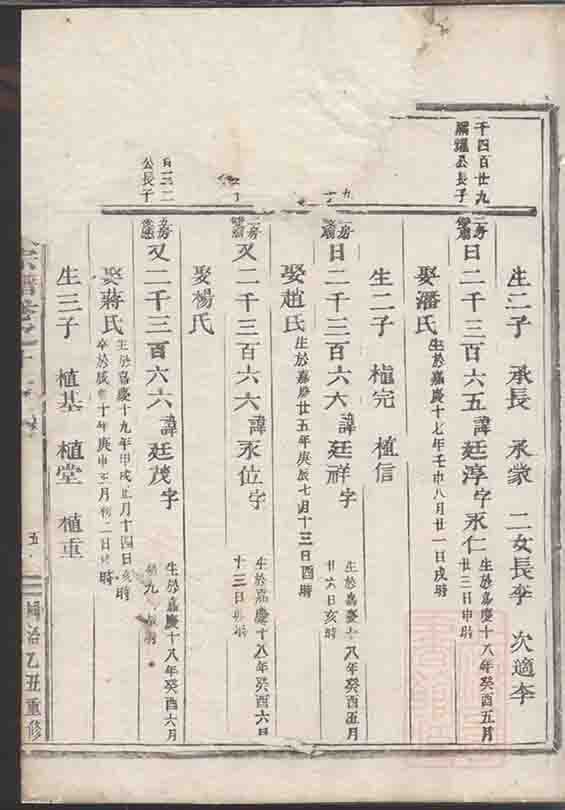 生二子 承長 承蒙 二女長李 次適李
千四百廿九
公長子
二房
日二千三百六五諱廷淳字永仁
生於嘉慶十八年癸酉五月
廿三日申時
娶潘氏
生於嘉慶十七年壬申八月廿一日戌時
生二子 植完 植信
二房
日二千三百六六諱廷祥字
生於嘉慶十八年癸酉五月
廿六日亥時
娶趙氏
生於嘉慶廿五年庚辰七月十三日酉時
二房
又二千三百六六諱永位字
生於嘉慶十八年癸酉六月
十三日
娶楊氏
公長子
房
又二千三百六六諱廷茂字
生於嘉慶十八年癸酉六月
九
娶蔣氏
生於嘉慶十九年甲戌 月十四日亥時
卒於咸 十年庚申 月 二日 時
生三子 植基 植堂 植重
宗譜卷之十
五
同治乙丑重修